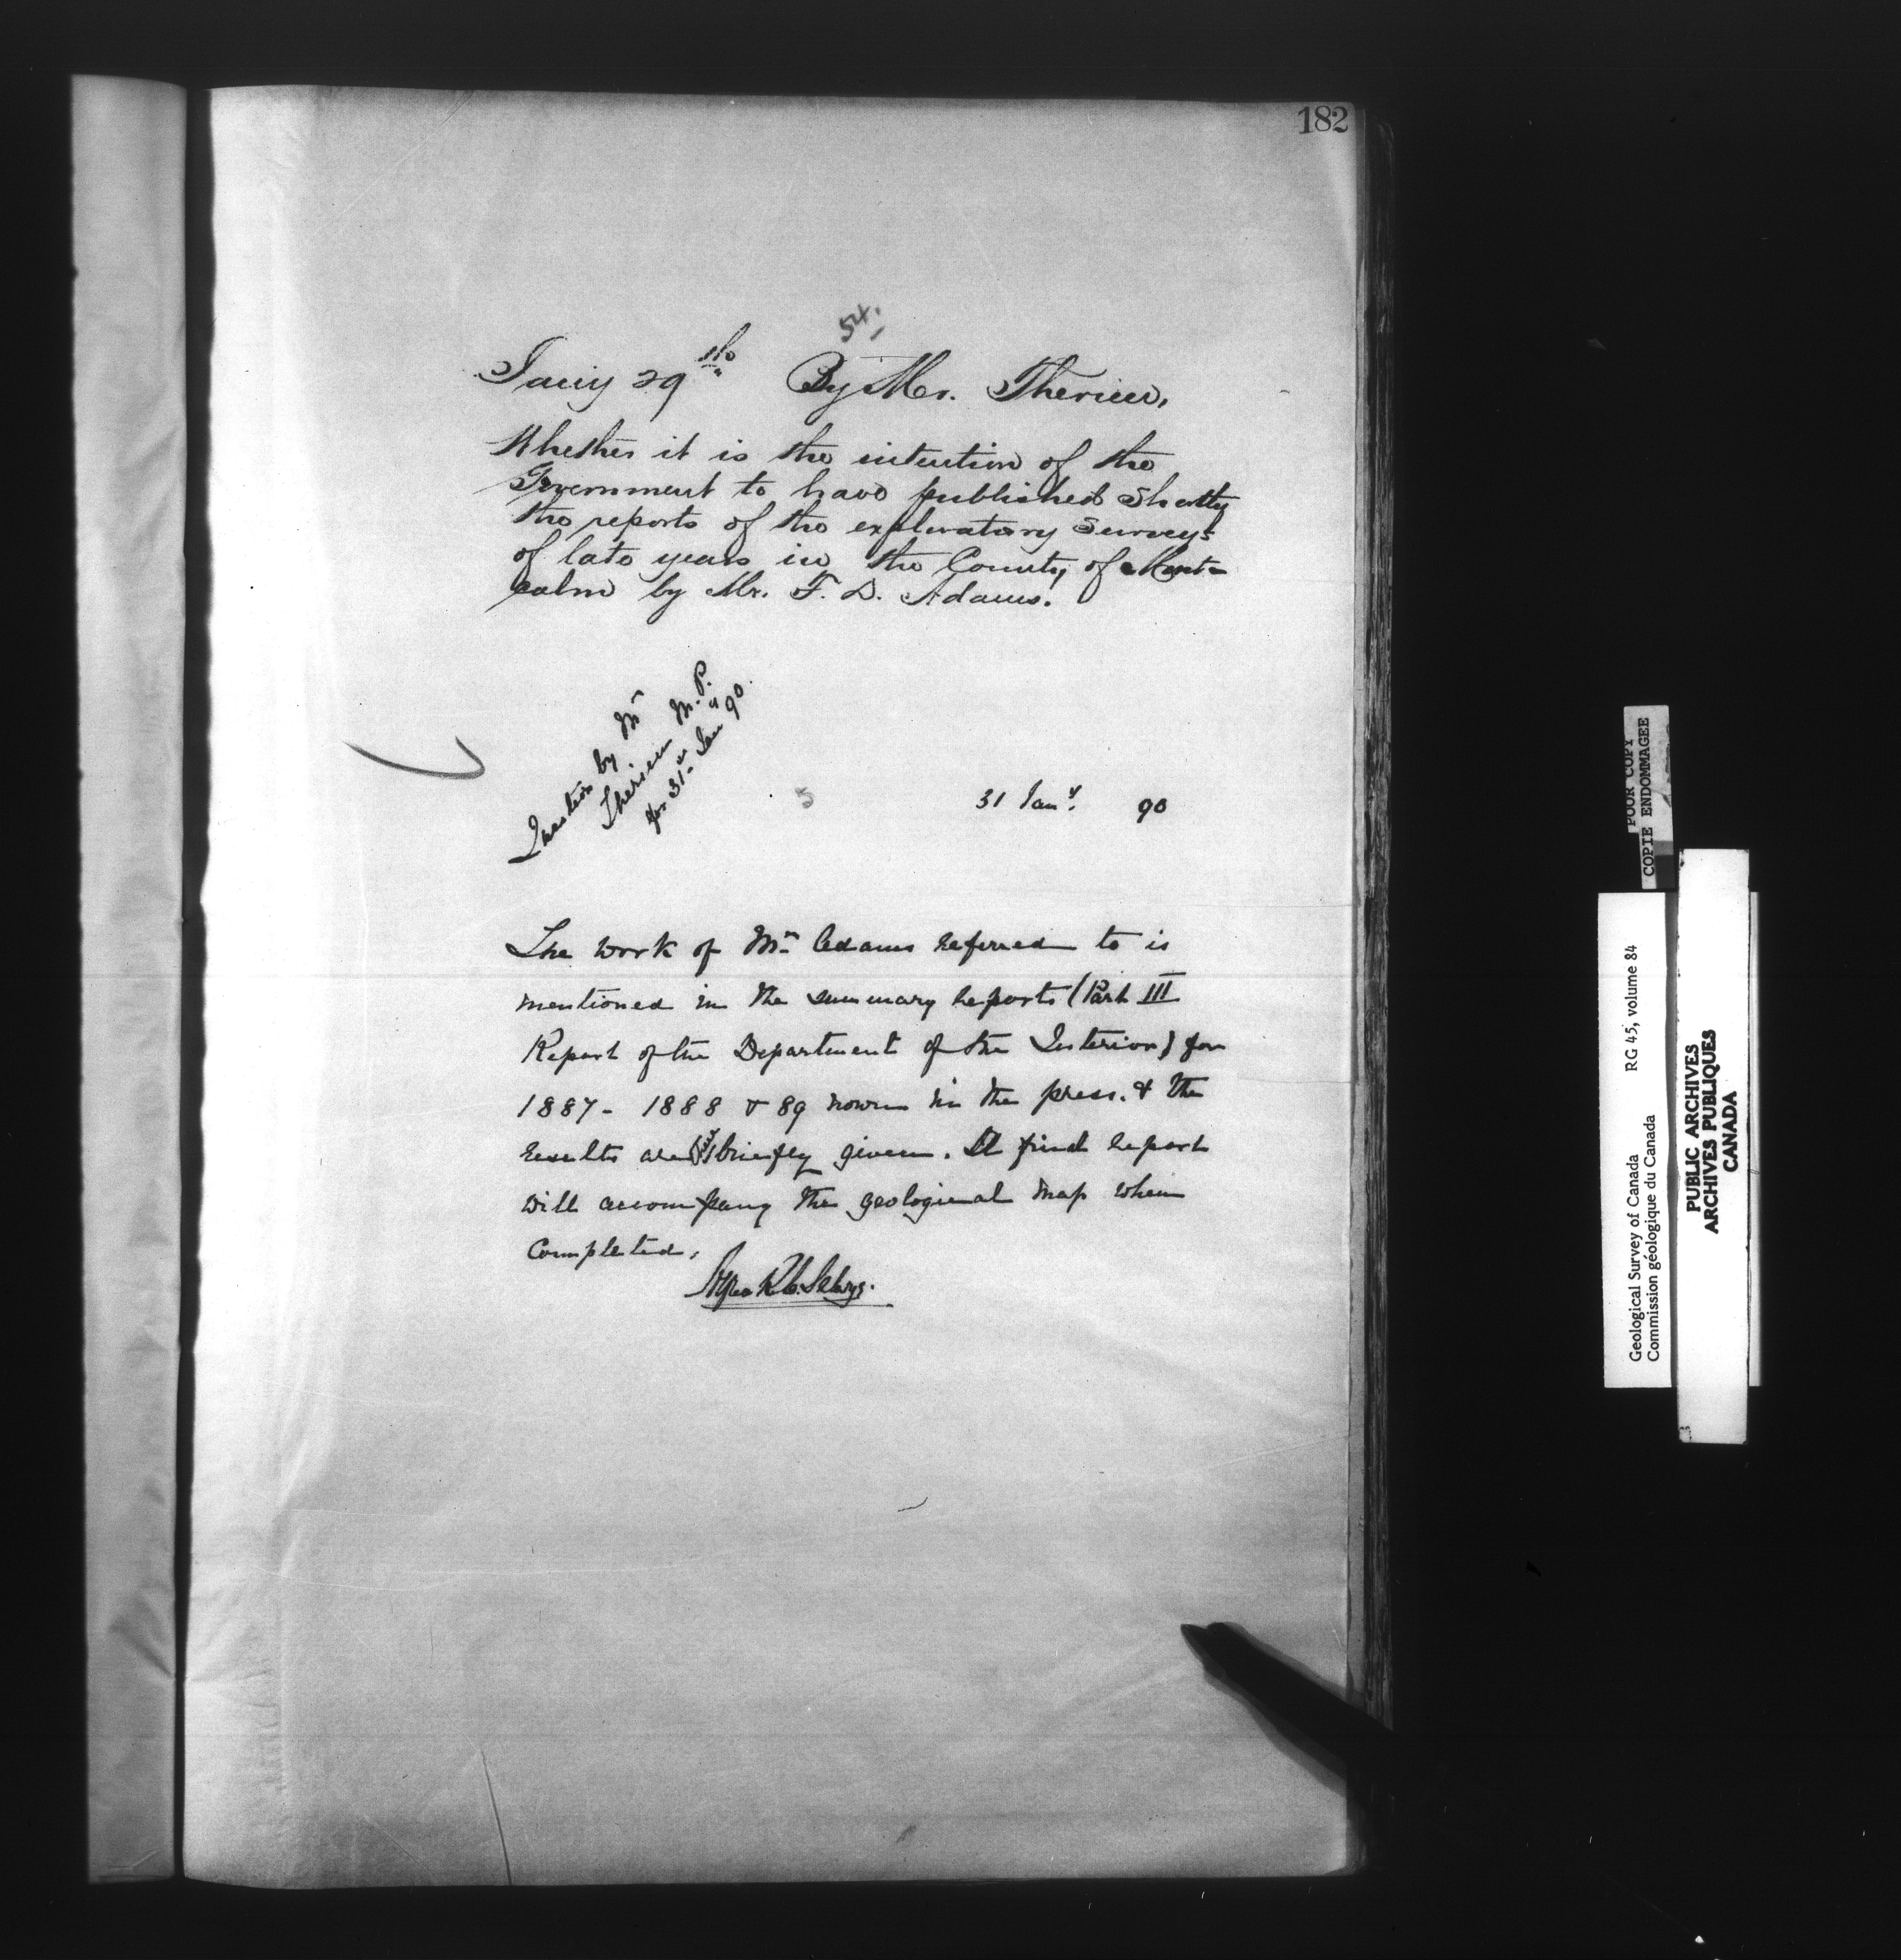 182
54.
Jany 29th By Mr. Therien,
Whether it is the intention of the
Government to have published shortly
the reports of the exploratory surveys
of late years in the County of Mont-
calm by Mr. F. D. Adams.
Question by Mr
Therien M.P.
for 31st Jan 90.
5
31 Jany. 90
The work of Mr Adams referred to is
mentioned in the summary reports (Part III
Report of the Department of the Interior) for
1887 - 1888 & 89 now in the press. & the
results are briefly given. A final report
will accompany the geological map when
completed.
Alfred R. C. Selwyn.
POOR COPY
COPIE ENDOMMAGEE
Geological Survey of Canada RG 45, volume 84
Commission géologique du Canada
PUBLIC ARCHIVES
ARCHIVES PUBLIQUES
CANADA